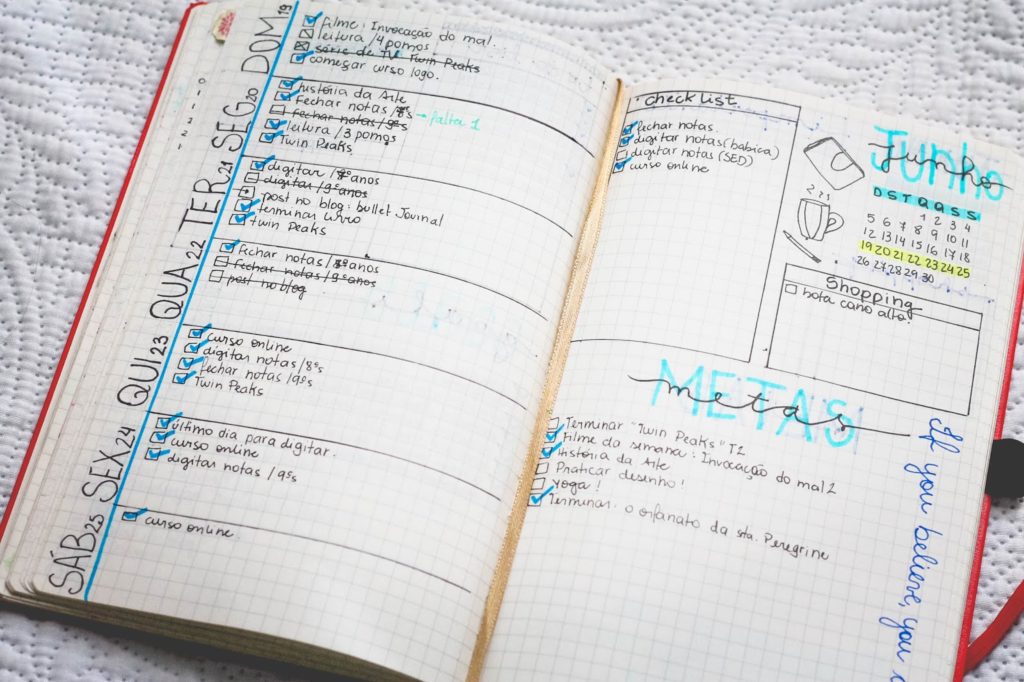 DOM 19
filme: Invocação do mal.
leitura /4 pomos
série de TV Twin Peaks
começar curso logo.
SEG 20
história da Arte
Fechar notas /8ºs → falta 1
fechar notas /9ºs
leitura /3 pomos
Twin Peaks
TER 21
digitar /8º anos
digitar /9º anos
post no blog: bullet Journal
terminar livro
twin Peaks
QUA 22
fechar notas /8º anos
fechar notas /9º anos
post no blog
QUI 23
curso online
digitar notas /8ºs
fechar notas /9ºs
Twin Peaks
SEX 24
último dia para digitar.
curso online
digitar notas /9ºs
SÁB 25
curso online
check list
fechar notas.
digitar notas (babica)
digitar notas (SED)
curso online
JUNHO
Junho
D S T Q Q S S
1 2 3 4
5 6 7 8 9 10 11
12 13 14 15 16 17 18
19 20 21 22 23 24 25
26 27 28 29 30
Shopping
bota cano alto!
METAS
metas
Terminar "Twin Peaks" T1
Filme da semana: Invocação do mal 2
História da Arte
Praticar desenho!
Yoga!
Terminar: o orfanato da sta. Peregrine
If you believe, you